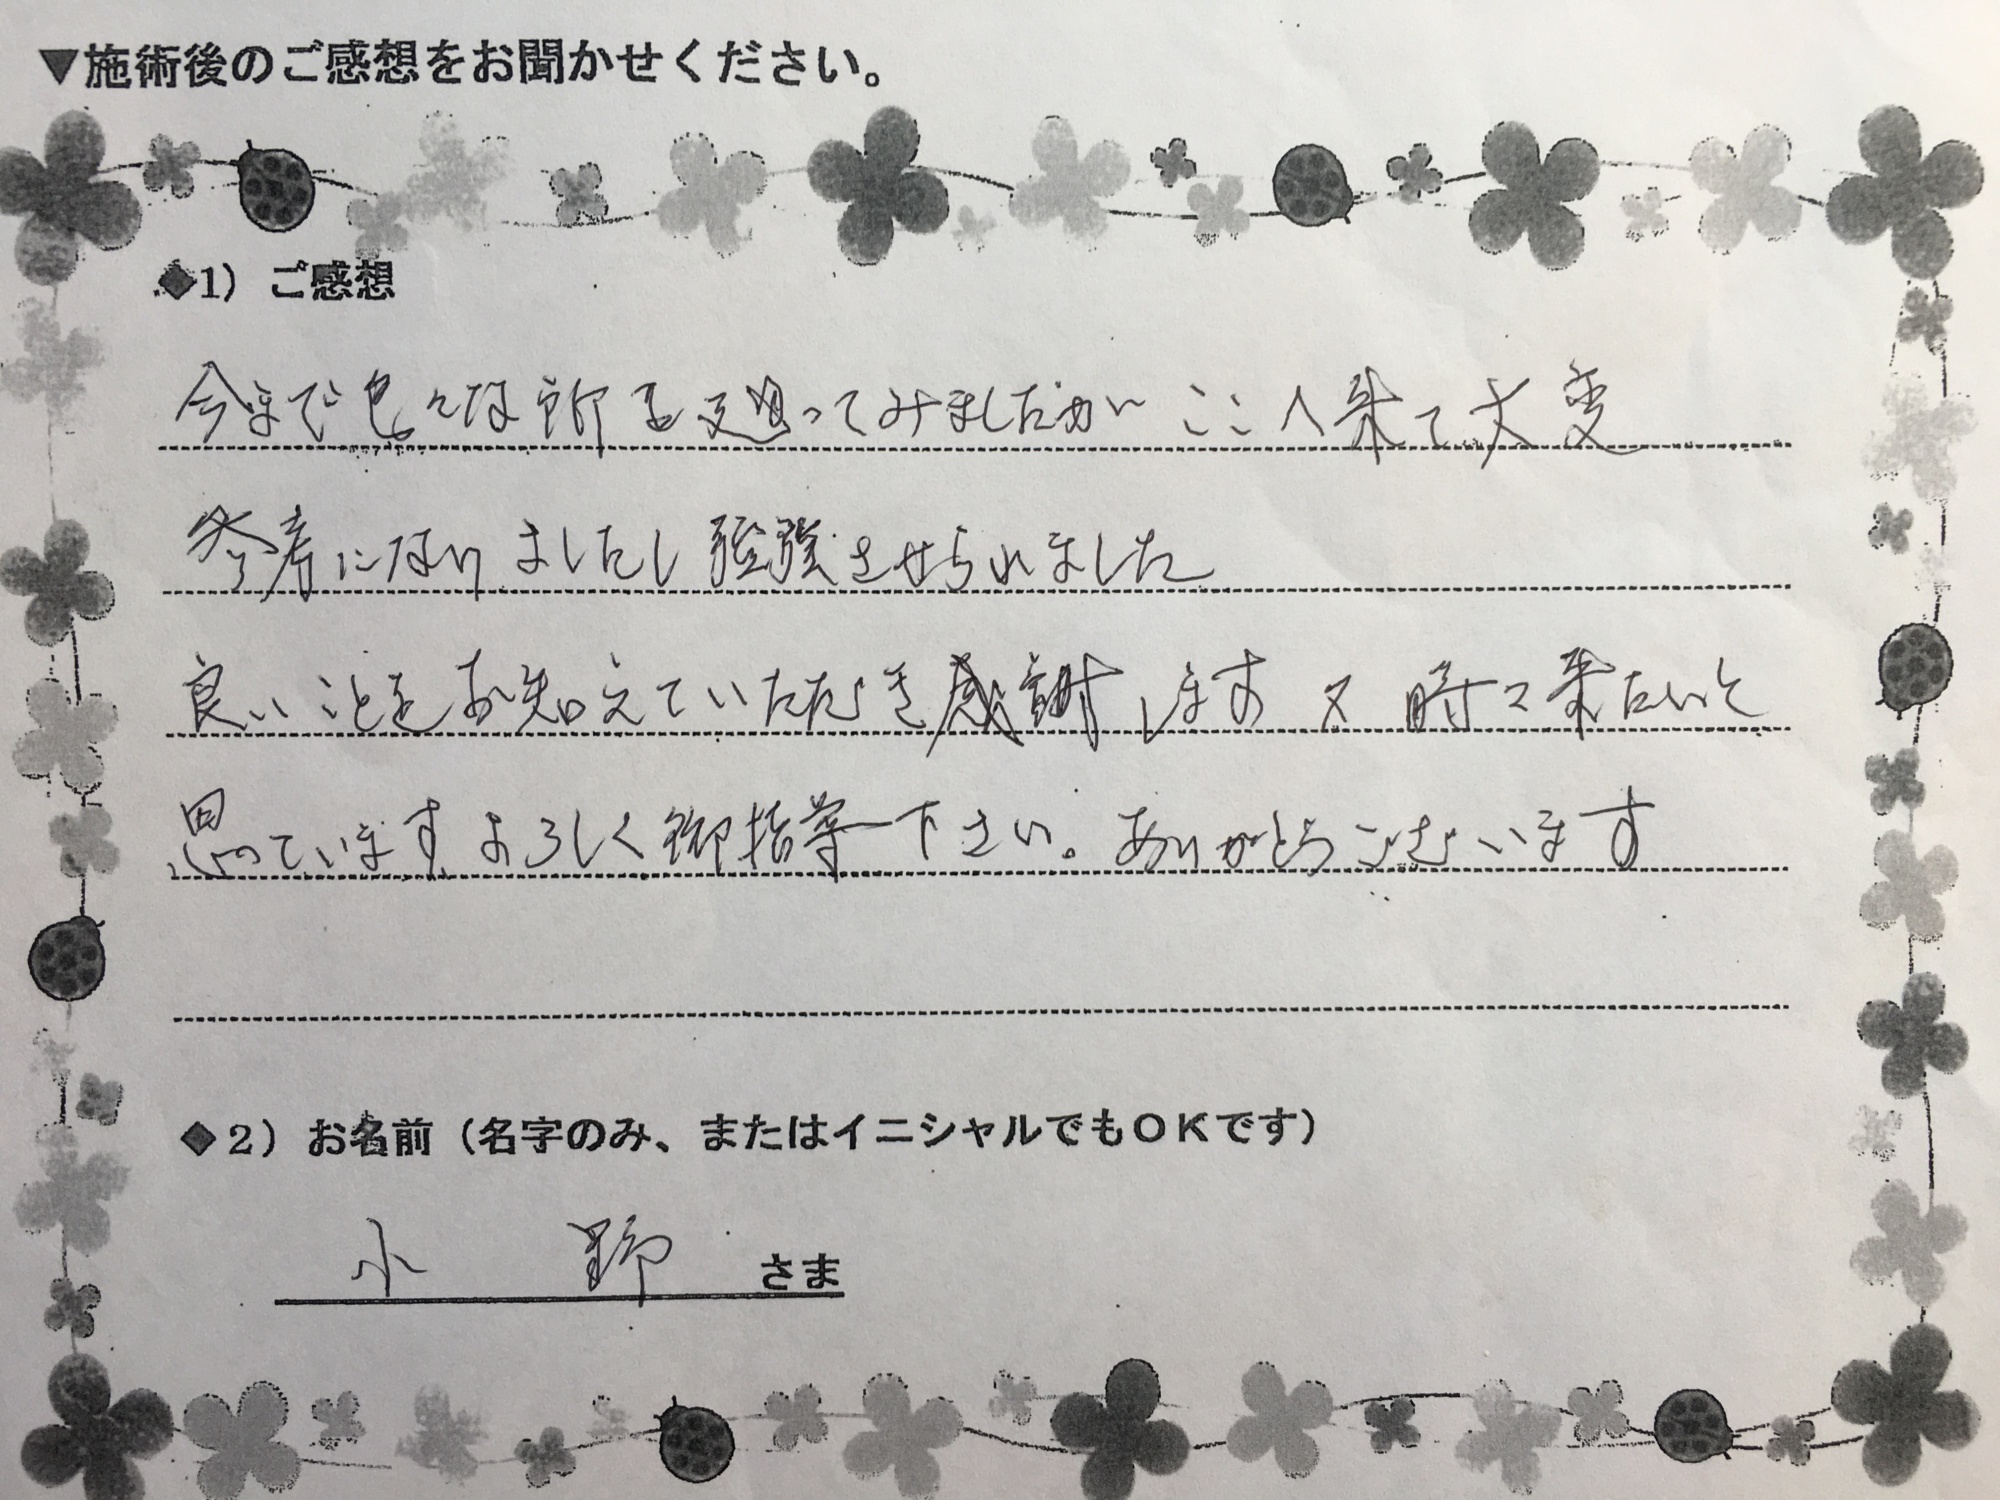 ▼施術後のご感想をお聞かせください。
◆1) ご感想
今まで色々な所を通ってみましたが ここへ来て大変
参考になりましたし 勉強させられました
良いことをお知えていただき感謝します 又 時々来たいと
思っています よろしく御指導下さい。ありがとうございます
◆2) お名前（名字のみ、またはイニシャルでもＯＫです）
小 野 さま